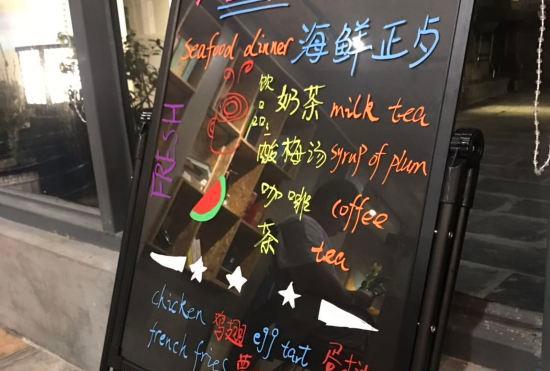 seafood dinner 海鲜正夕
FRESH
饮品:
奶茶 milk tea
酸梅汤 syrup of plum
咖啡 coffee
茶 tea
chicken 鸡翅 egg tart 蛋
french fries